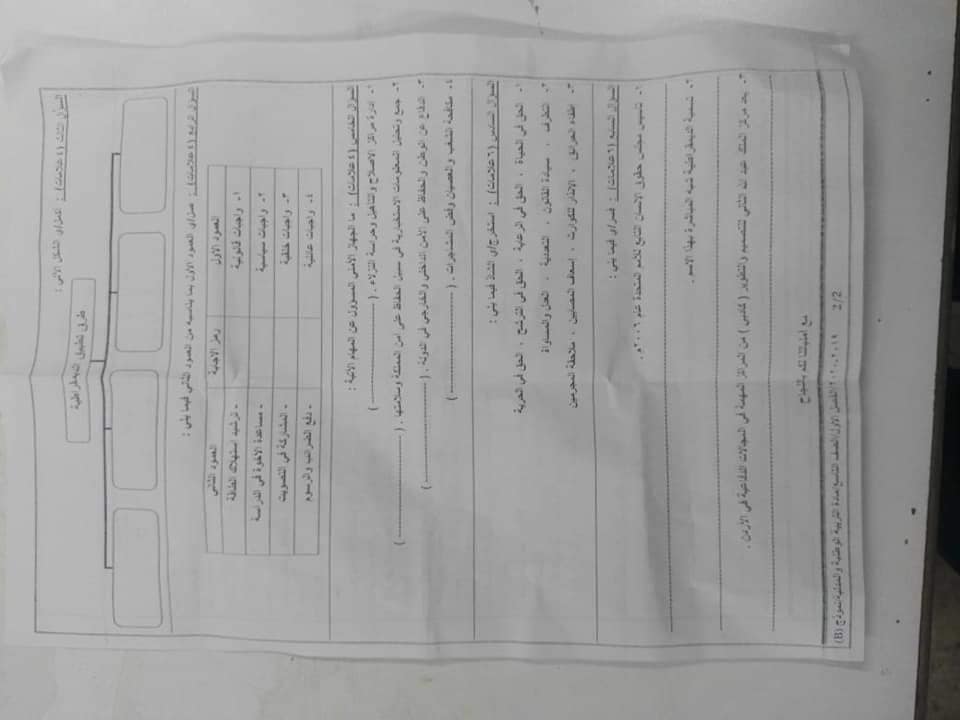 السؤال الثالث (٤ علامات) : اكمل/ي الشكل الآتي :
طرق تطبيق الديمقراطية
السؤال الرابع (٤ علامات) : صل/ي العمود الاول بما يناسبه من العمود الثاني فيما يلي :
العمود الاول رمز الاجابة العمود الثاني
١. واجبات قانونية - ترشيد استهلاك الطاقة
٢. واجبات سياسية - مساعدة الاخوة في الدراسة
٣. واجبات خلقية - المشاركة في التصويت
٤. واجبات عائلية - دفع الضرائب والرسوم
السؤال الخامس (٤ علامات) : ما الجهاز الأمني المسؤول عن المهام الآتية :
١. ادارة مراكز الاصلاح والتأهيل وحراسة النزلاء . ( ............ )
٢. جمع وتحليل المعلومات الاستخبارية في سبيل الحفاظ على امن المملكة وسلامتها . ( ............ )
٣. الدفاع عن الوطن والحفاظ على الامن الداخلي والخارجي في الدولة . ( ............ )
٤. مكافحة الشغب والعصيان وفض المشاجرات . ( ............ )
السؤال السادس (٦ علامات) : استخرج/ي الشاذ فيما يلي :
١. الحق في الحياة ، الحق في الرعاية ، الحق في الترشيح ، الحق في الحرية
٢. التطرف ، سيادة القانون ، التعددية ، العدل والمساواة
٣. إطفاء الحرائق ، الانذار للكوارث ، إسعاف المصابين ، ملاحقة المجرمين
السؤال السابع (٦ علامات) : فسر/ي فيما يلي :
١. تأسيس مجلس حقوق الانسان التابع للأمم المتحدة عام ٢٠٠٦م .
٢. تسمية الديمقراطية شبه المباشرة بهذا الاسم .
٣. يعد مركز الملك عبد الله الثاني للتصميم والتطوير ( كادبي ) من المراكز المهمة في المجالات الدفاعية في الاردن .
مع امنياتنا لكم بالنجاح
٢٠١٩-٢٠٢٠/الفصل الاول/الصف التاسع/مادة التربية الوطنية والمدنية/نموذج (B) 2/2